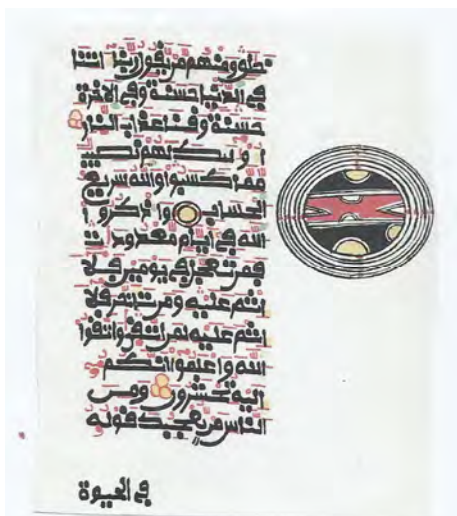 خلق ومنهم من يقول ربنا اتنا
في الدنيا حسنة وفي الاخرة
حسنة وقنا عذاب النار
اوليك لهم نصيب
مما كسبوا والله سريع
الحساب واذكروا
الله في ايام معدودات
فمن تعجل في يومين فلا
اثم عليه ومن تاخر فلا
اثم عليه لمن اتقى واتقوا
الله واعلموا انكم
اليه تحشرون ومن
الناس من يعجبك قوله
في الحيوة